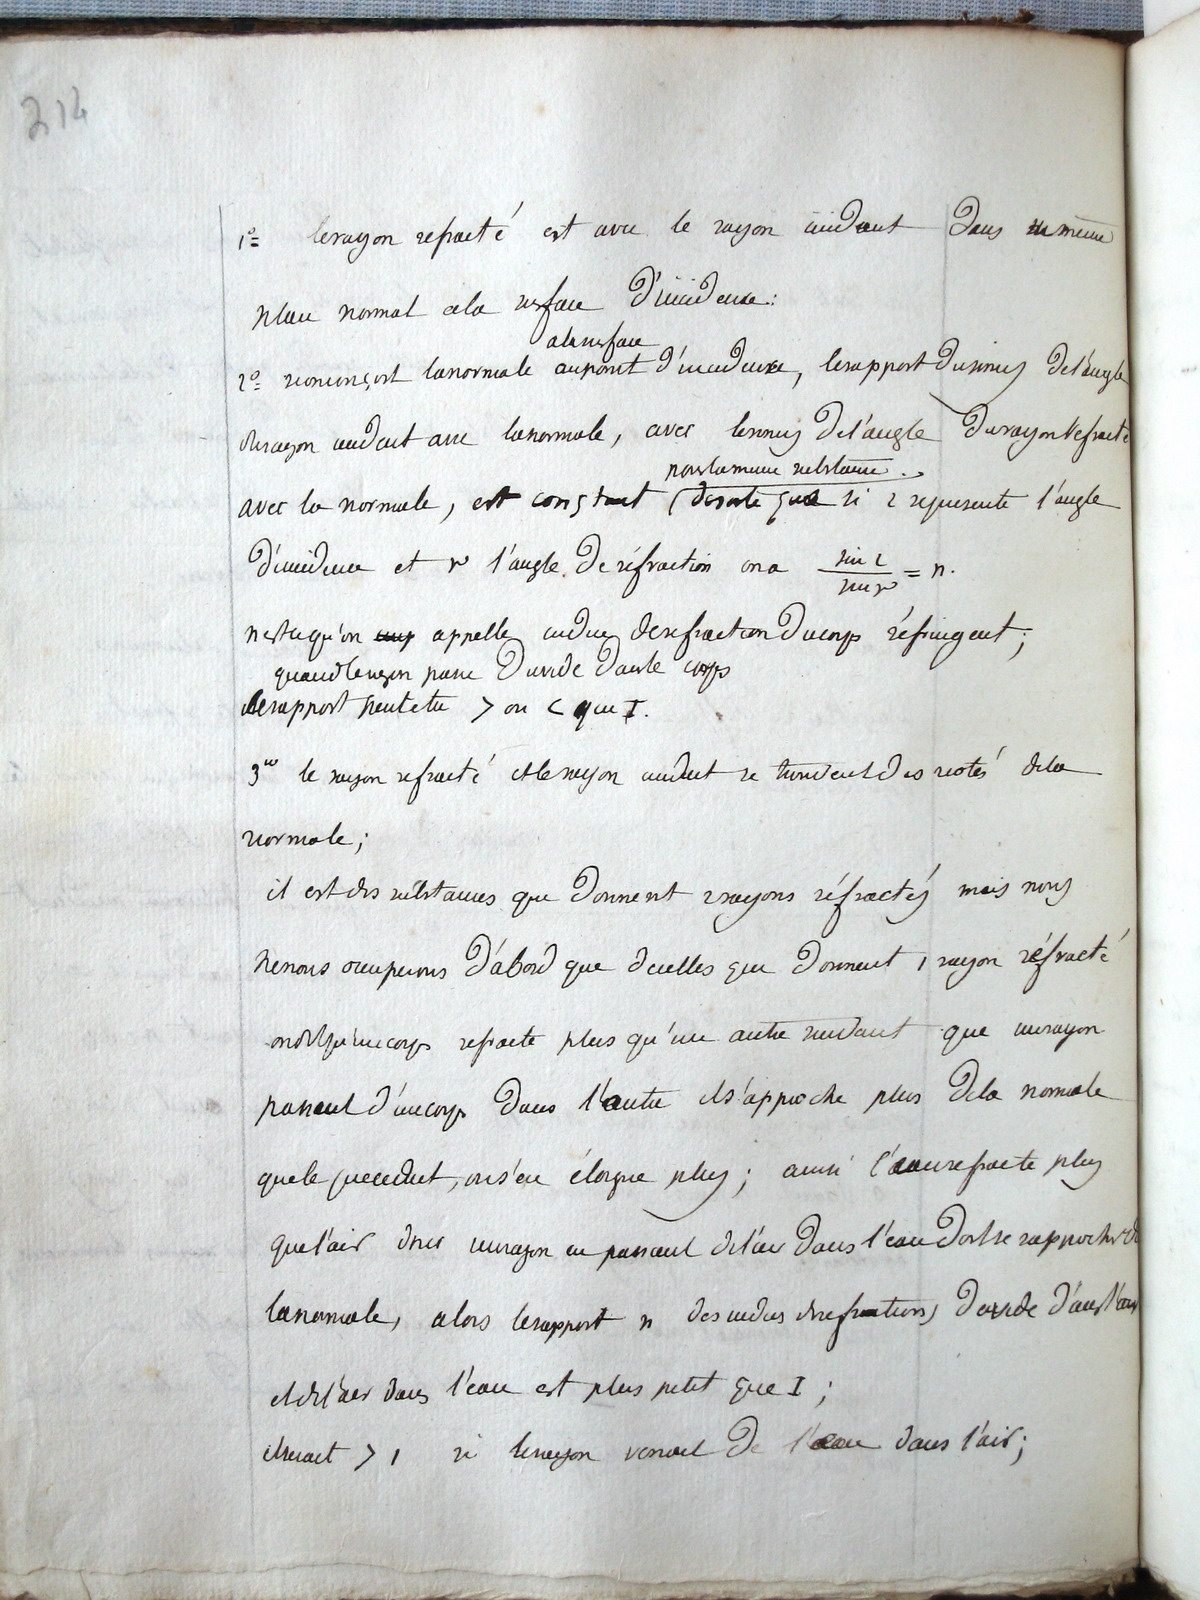 214
1° le rayon refracté est avec le rayon incident dans un même
plan normal a la surface d'incidence:
a la surface
2° si on conçoit la normale au point d'incidence, le rapport du sinus de l'angle
du rayon incident avec la normale, avec le sinus de l'angle du rayon réfracté
pour la meme substance
avec la normale, est constant (de sorte que si i represente l'angle
d'incidence et r l'angle de réfraction on a sin i / sin r = n.
n est ce qu'on appelle indice de refraction du corps réfringent;
quand le rayon passe du vide dans le corps
le rapport peut etre > ou < que 1.
3° le rayon refracté et le rayon incident se trouvent des 2 cotés de la
normale;
il est des substances que donnent 2 rayons réfractés mais nous
ne nous occuperons d'abord que de celles qui donnent 1 rayon réfracté
on dit qu'un corps refracte plus qu'un autre que un rayon
passant d'un corps dans l'autre il s'approche plus de la normale
que le precedent, ou s'en éloigne plus; ainsi l'eau refracte plus
que l'air donc un rayon en passant de l'air dans l'eau doit se rapprocher de
la normale, alors le rapport n des indices de refractions du vide dans l'eau
et de l'air dans l'eau est plus petit que 1;
il serait > 1 si le rayon venait de l'eau dans l'air;